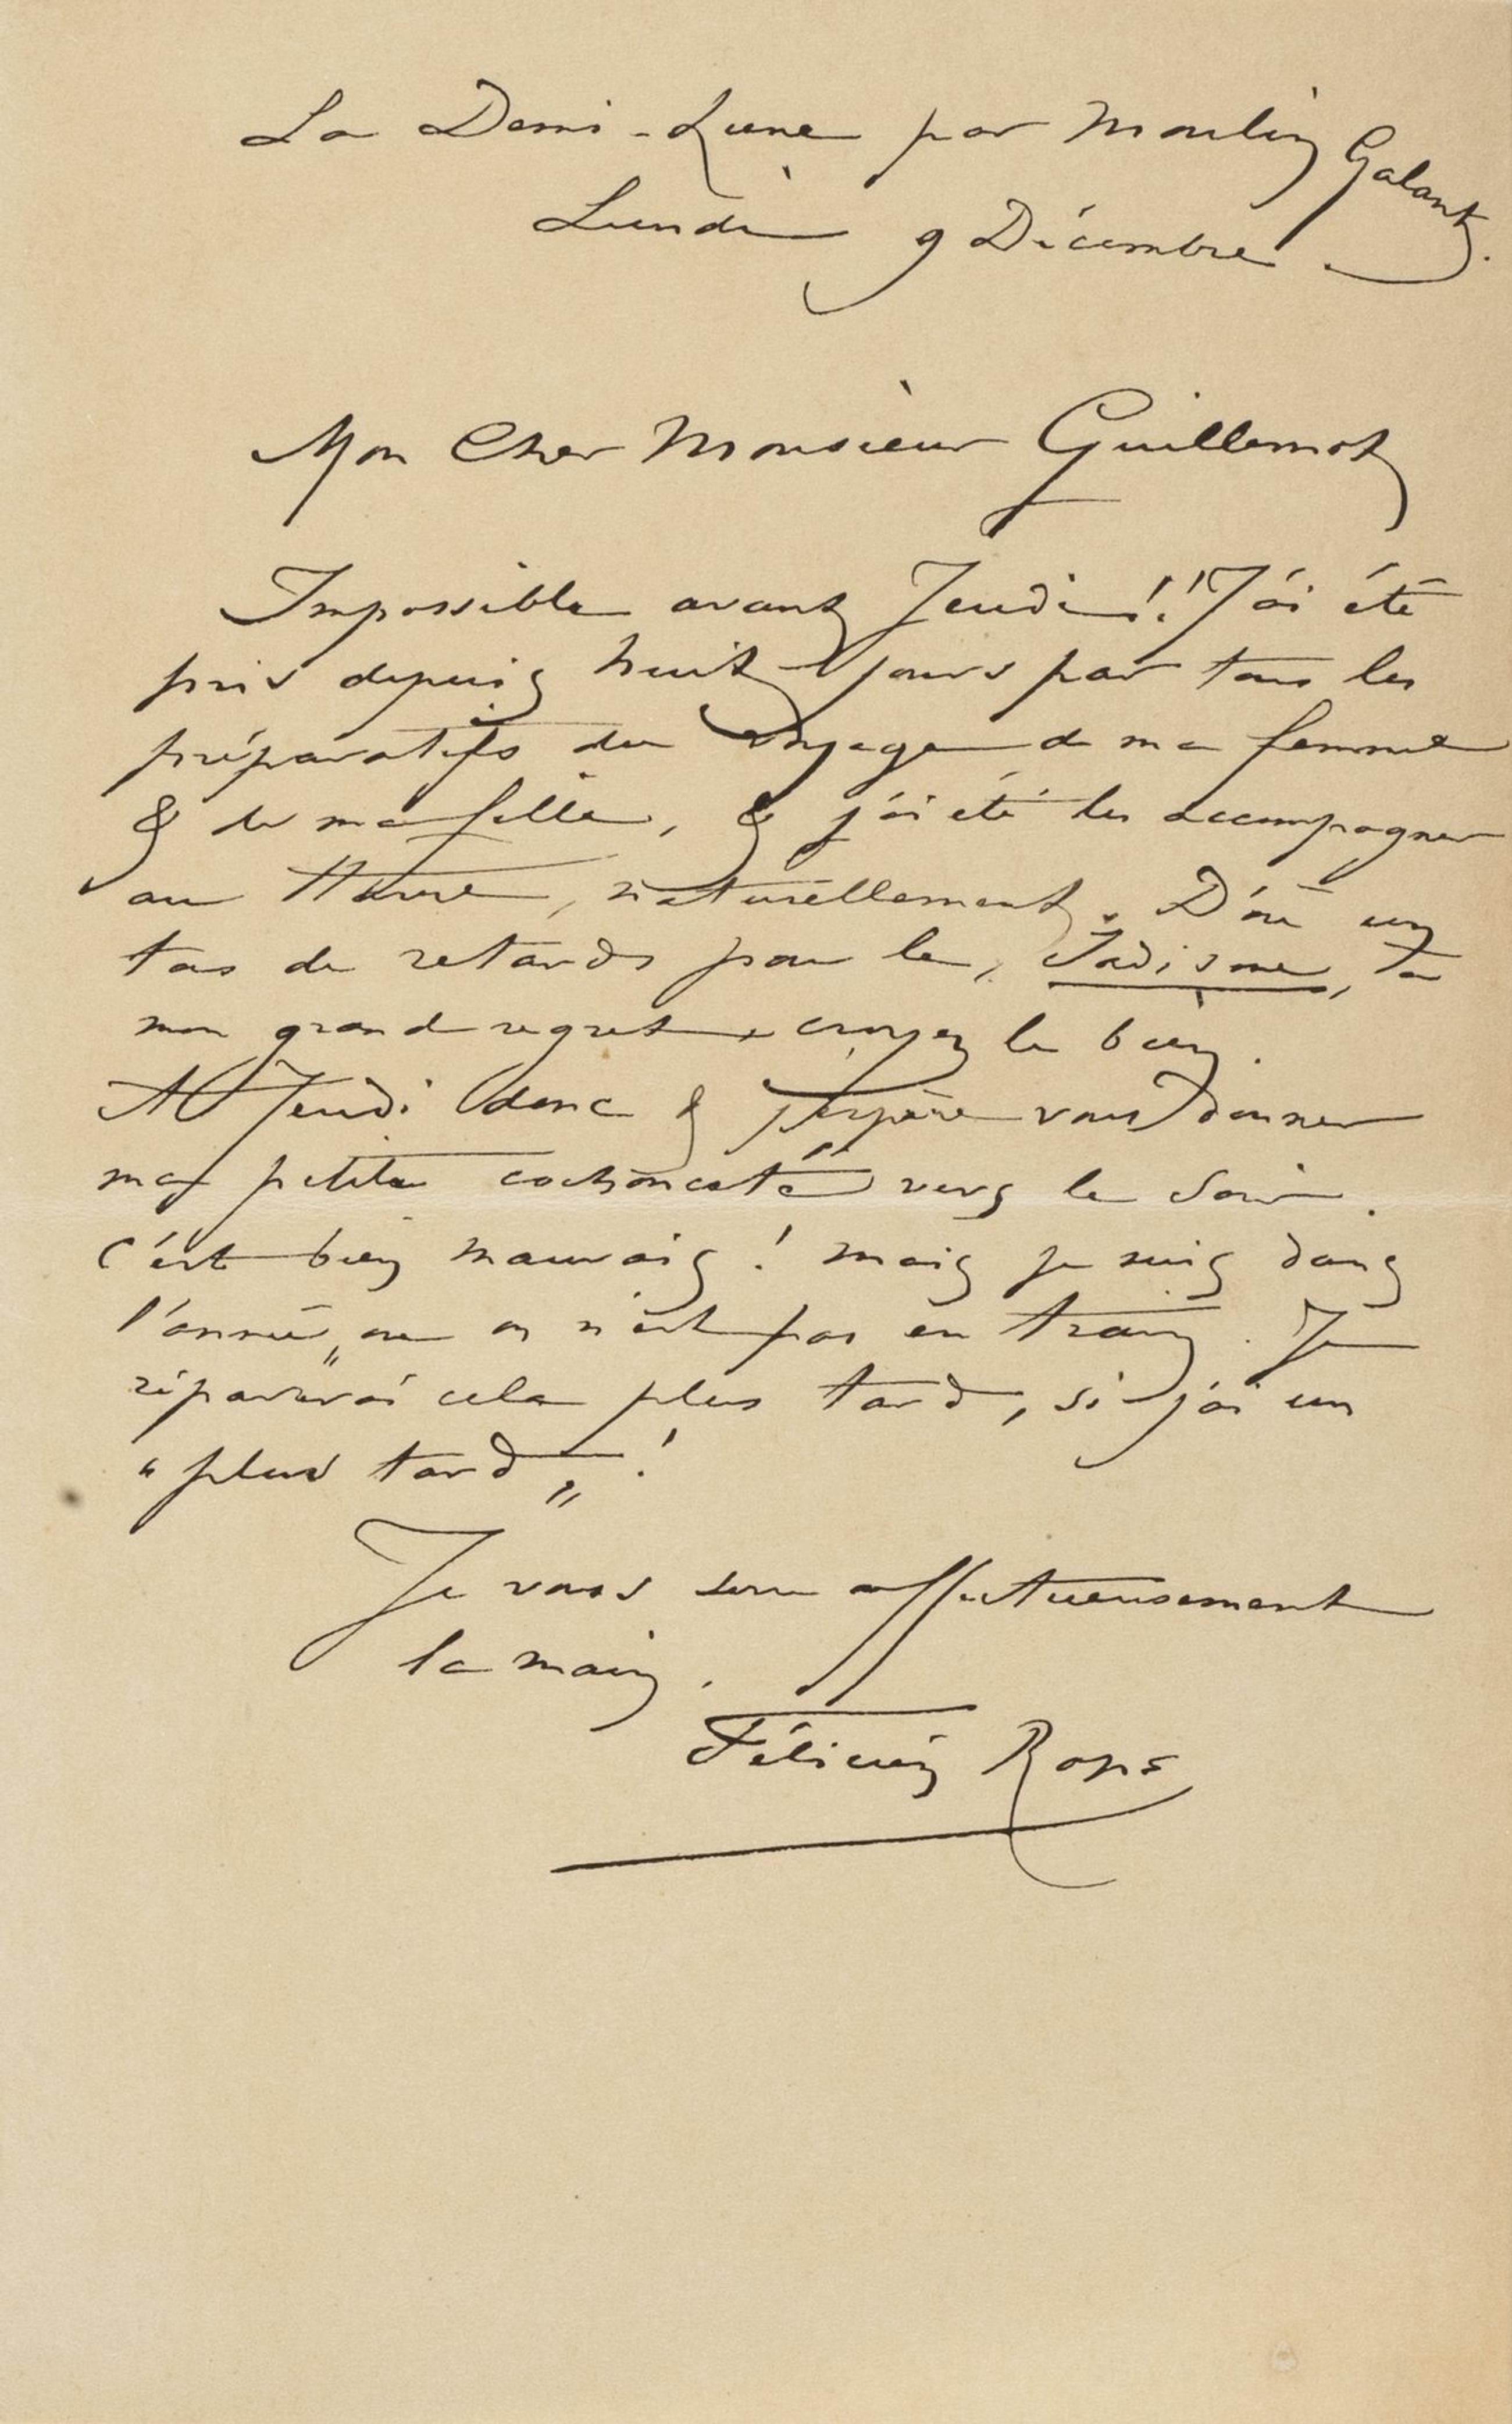 La Demi-Lune par Moulin Galant.
Lundi 9 Décembre.
Mon Cher Monsieur Guillemot
Impossible avant Jeudi!! J'ai été
pris depuis huit jours par tous les
préparatifs du voyage de ma femme
& de ma fille, & j'ai été les accompagner
au Havre, naturellement. D'où un
tas de retards pour le, Sadisme, à
mon grand regret, croyez le bien.
A Jeudi donc & j'espère vous donner
ma petite cochonceté vers le Soir.
C'est bien mauvais! mais je suis dans
l'année „ où on n'est pas en train. Je
réparerai cela plus tard, si j'ai un
“plus tard„!
Je vous serre affectueusement
la main.
Félicien Rops